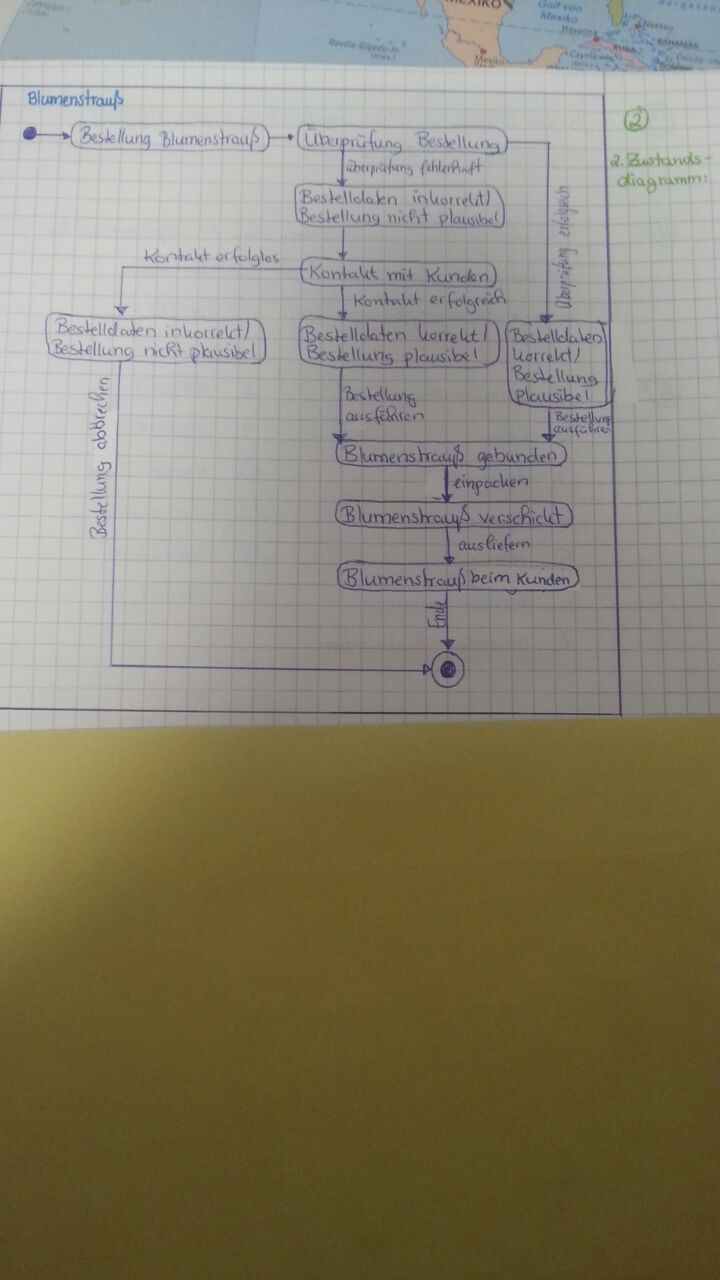 MEXIKO
Golf von
Mexiko
Nassau
Havanna
BAHAMAS
KUBA
Revilla-Gigedo-In
(mex.)
Mexiko
Blumenstrauß
②
2. Zustands-
diagramm:
Bestellung Blumenstrauß
Überprüfung Bestellung
überprüfung fehlerhaft
Überprüfung erfolgreich
Bestelldaten inkorrekt/
Bestellung nicht plausibel
Kontakt erfolglos
Kontakt mit Kunden
Kontakt erfolgreich
Bestelldaten inkorrekt/
Bestellung nicht plausibel
Bestelldaten korrekt/
Bestellung plausibel
Bestelldaten
korrekt/
Bestellung
plausibel
Bestellung abbrechen
Bestellung
ausführen
Bestellung
ausführen
Blumenstrauß gebunden
einpacken
Blumenstrauß verschickt
ausliefern
Blumenstrauß beim Kunden
Ende